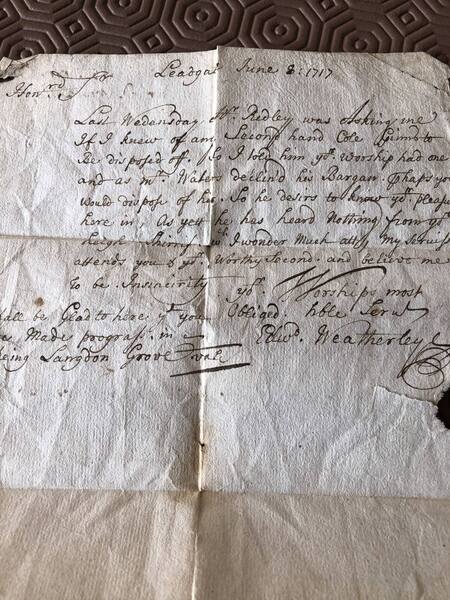 Leadgat June 8: 1717
Honrd. Sr
Last Wedensday Mr. Ridley was Asking me
If I knew of any Second hand Cole
Be disposed off. So I told him yr. worship had one
and as Mr. Waters declin'd his Bargan. Phaps you
would dispose of her. So he desires to know yr. pleas
here in, As yett he has heard Nothing from
I wonder Much att, my Servis
attends you & yr. Worthy Second. and beleive me
To be Insincirity yr. Worships most
all be Glad to here yt you Obliged hble Servt
Made prograss in Edwd. Weatherley
Langdon Grove Vale